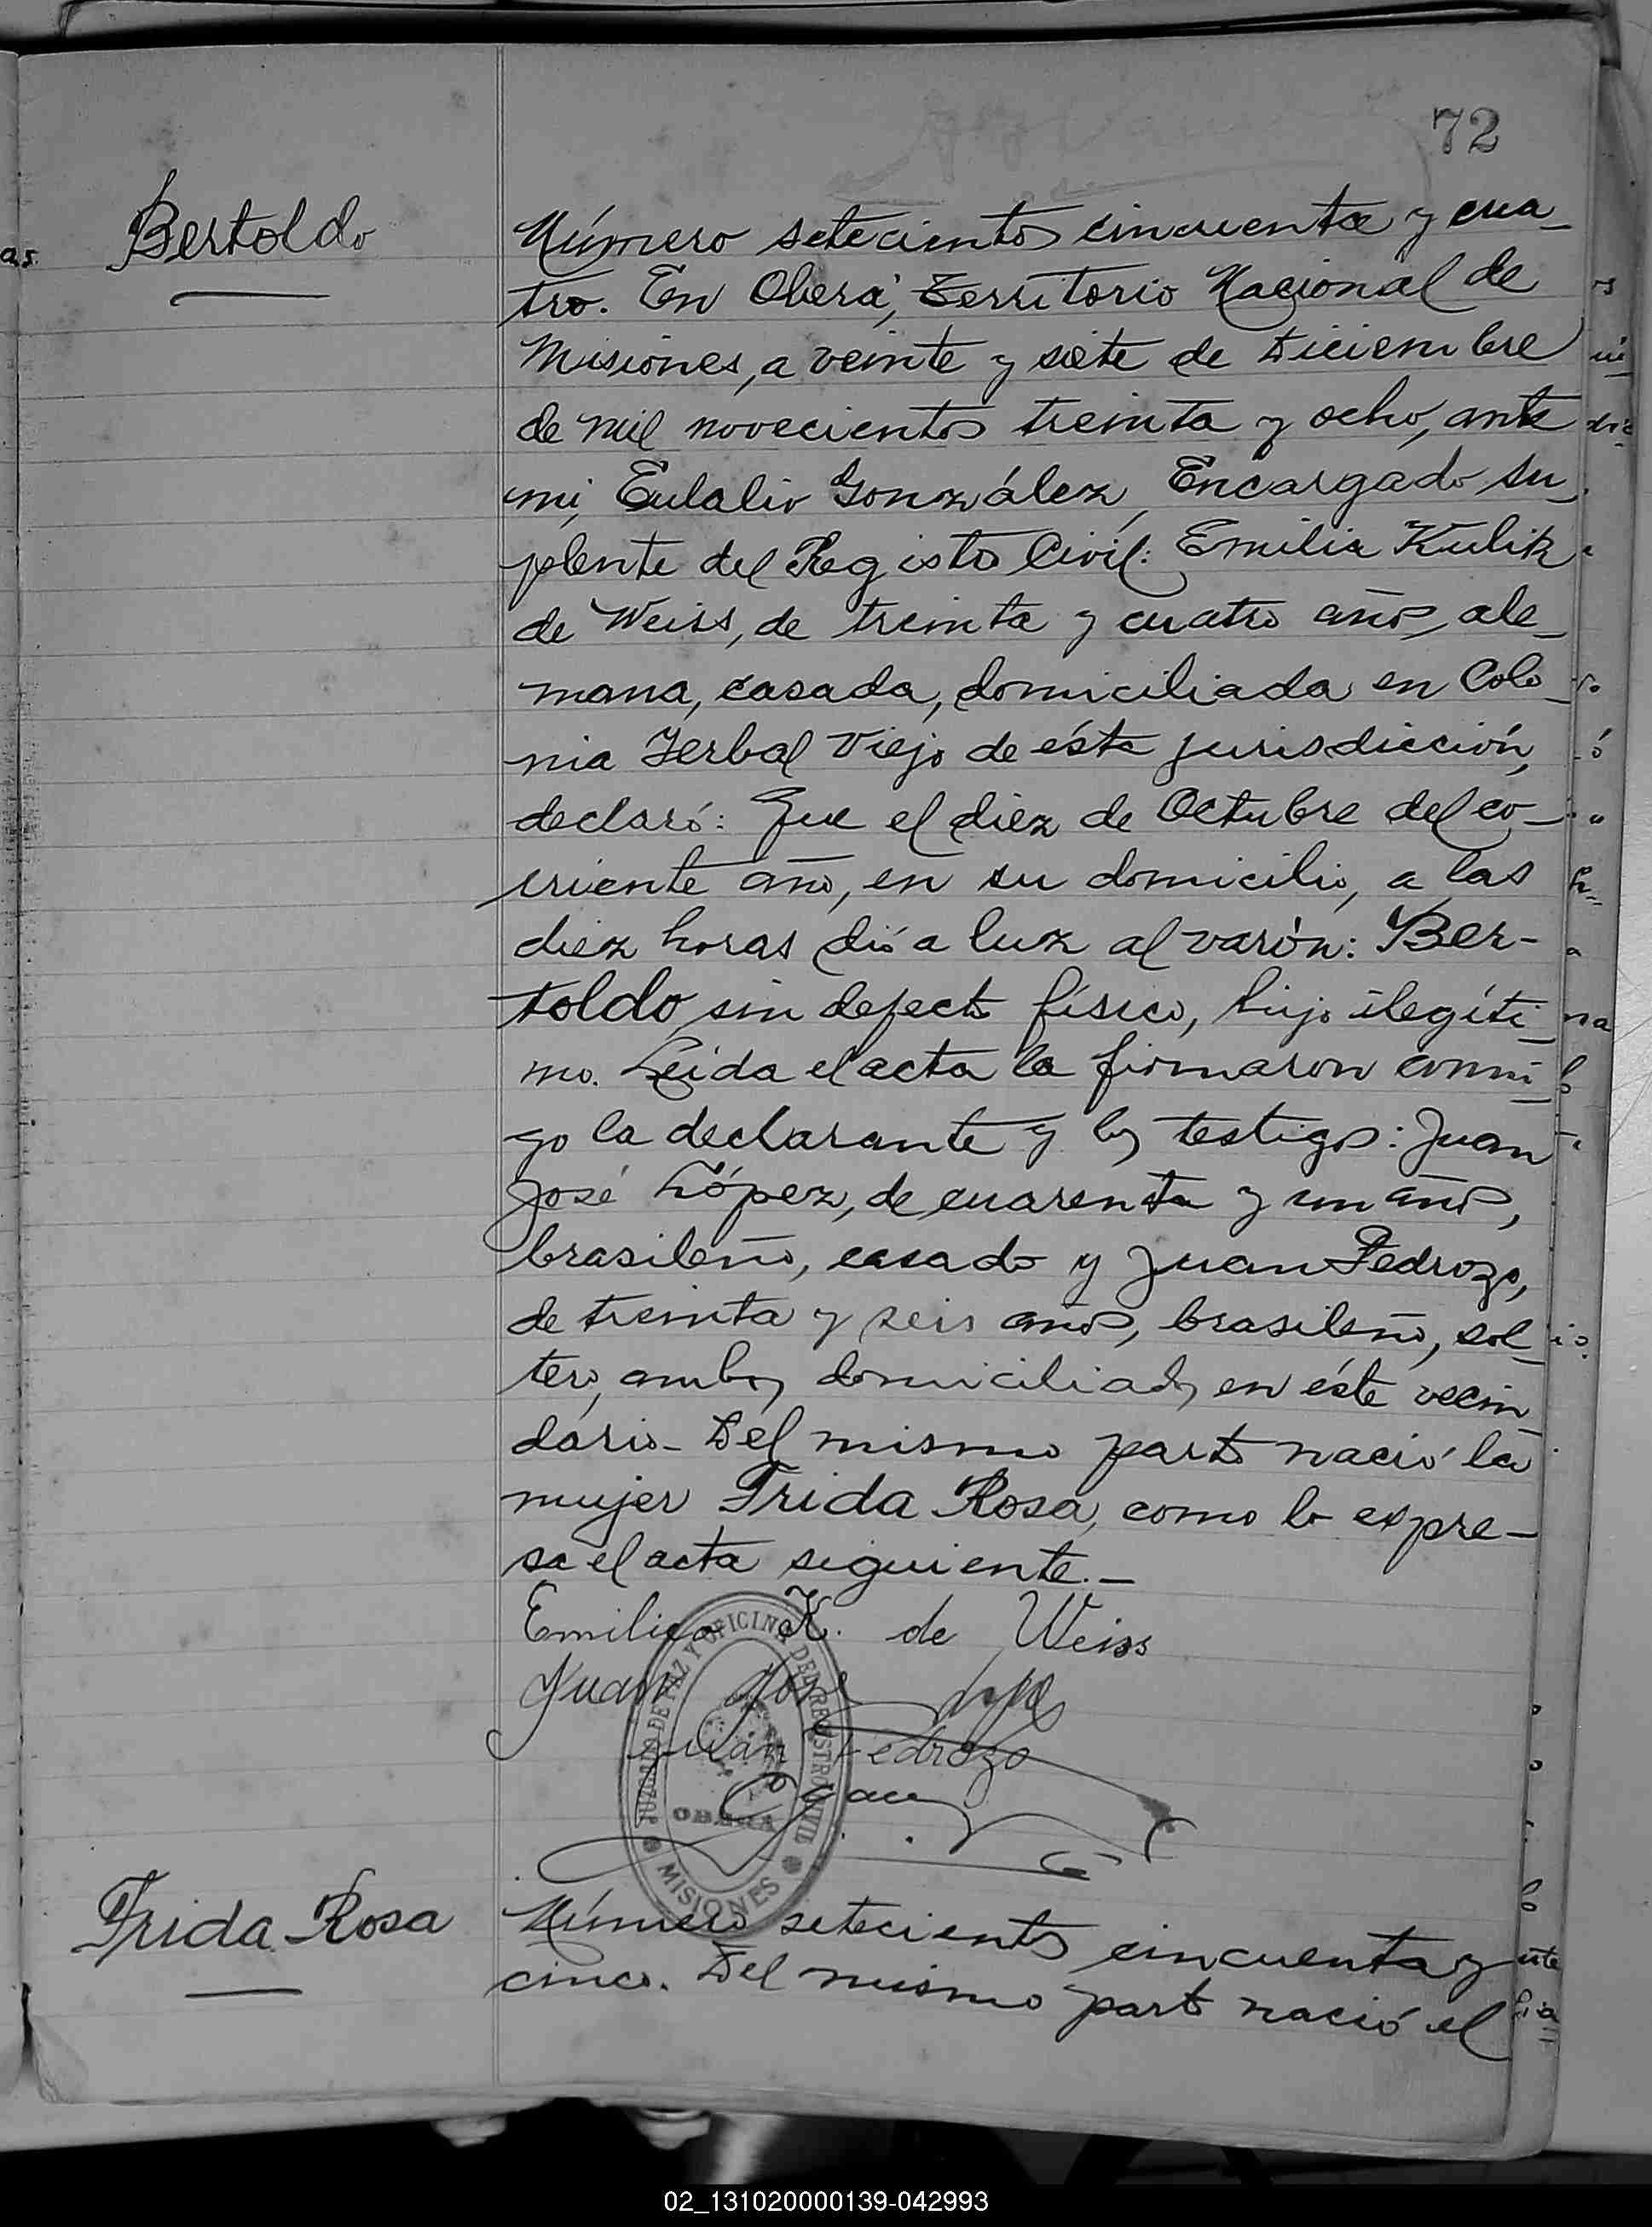 72
Bertoldo
Número setecientos cincuenta y cua_
tro. En Oberá, Territorio Nacional de
Misiones, a veinte y siete de Diciembre
de mil novecientos treinta y ocho, ante
mi, Eulalio González, Encargado su_
plente del Registo Civil: Emilia Kulik
de Weiss, de treinta y cuatro años, ale_
mana, casada, domiciliada en Colo_
nia Yerbal Viejo de ésta jurisdicción,
declaró: Que el diez de Octubre del co_
rriente año, en su domicilio, a las
diez horas dió a luz al varón: Ber-
toldo sin defecto físico, hijo ilegíti_
mo. Leida el acta la firmaron conmi_
go la declarante y los testigos: Juan
José López, de cuarenta y un años,
brasileño, casado y Juan Pedrozo,
de treinta y seis años, brasileño, sol_
tero, ambos domiciliados en éste vecin_
dario_ Del mismo parto nació la
mujer Frida Rosa, como lo expre_
sa el acta siguiente._
Emilia K. de Weiss
Juan José López
Juan Pedrozo
JUZGADO DE PAZ Y OFICINA DEL REGISTRO CIVIL
OBERÁ
MISIONES
Frida Rosa
Número setecientos cincuenta y
cinco. Del mismo parto nació el
02_131020000139-042993